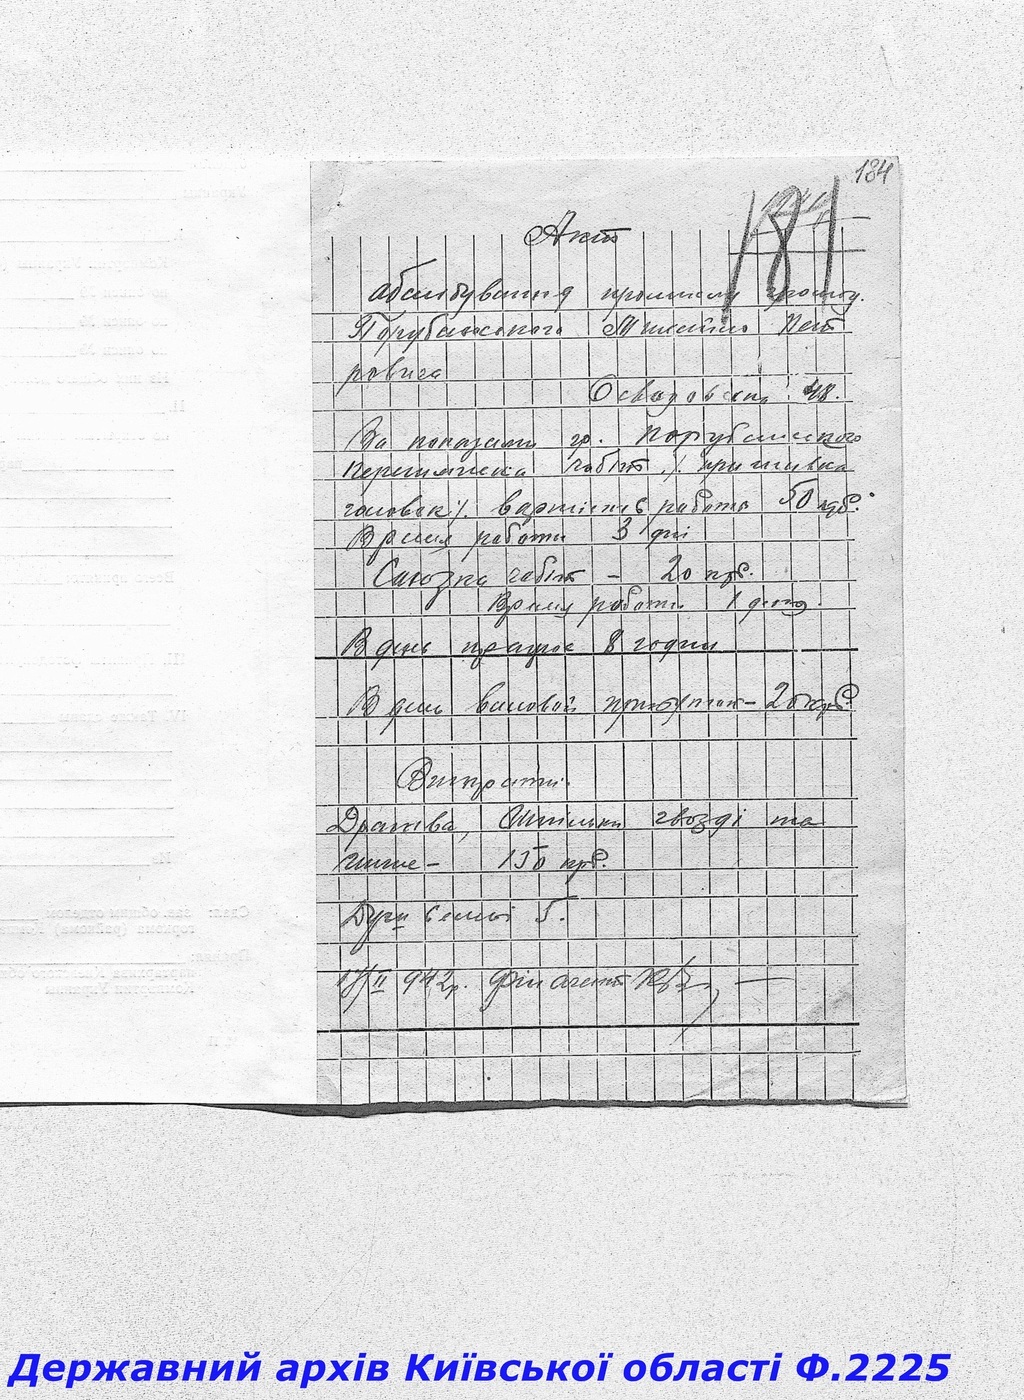 184
181
Акт
абслідування промислу громад.
Порубанського Михайло Пет
ровича
48.
За показами гр. Порубанського
Перетяжка чобіт /. пришивка
головок /. вартість работи 50 крб.
Время работи 3 дні
Союзка чобіт - 20 крб.
Время работи 1 день.
В день працює 8 годин
В день валовой прибуток - 20 крб.
Витрати.
Дратва, Шпільки гвозді та
інше - 150 крб.
Душ семьї 5.
17/II 942р. Фін агент
Державний архів Київської області Ф.2225